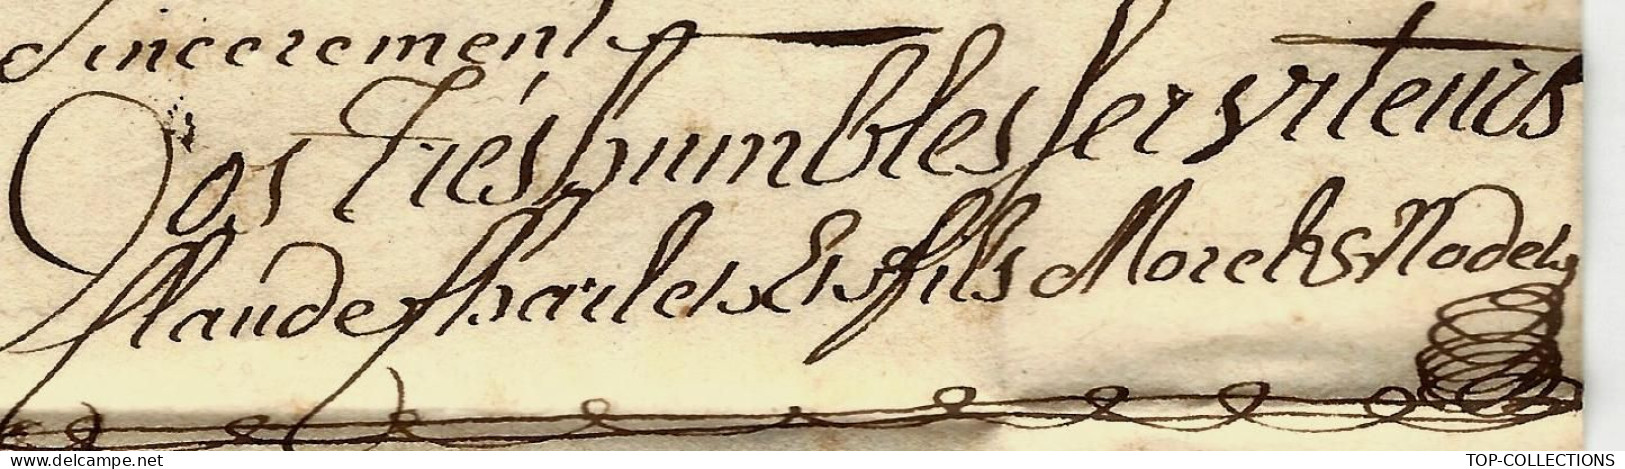 Sincerement
Vos trés humbles serviteurs
Claude Charles Et fils Morel & Nodet
www.delcampe.net
TOP-COLLECTIONS